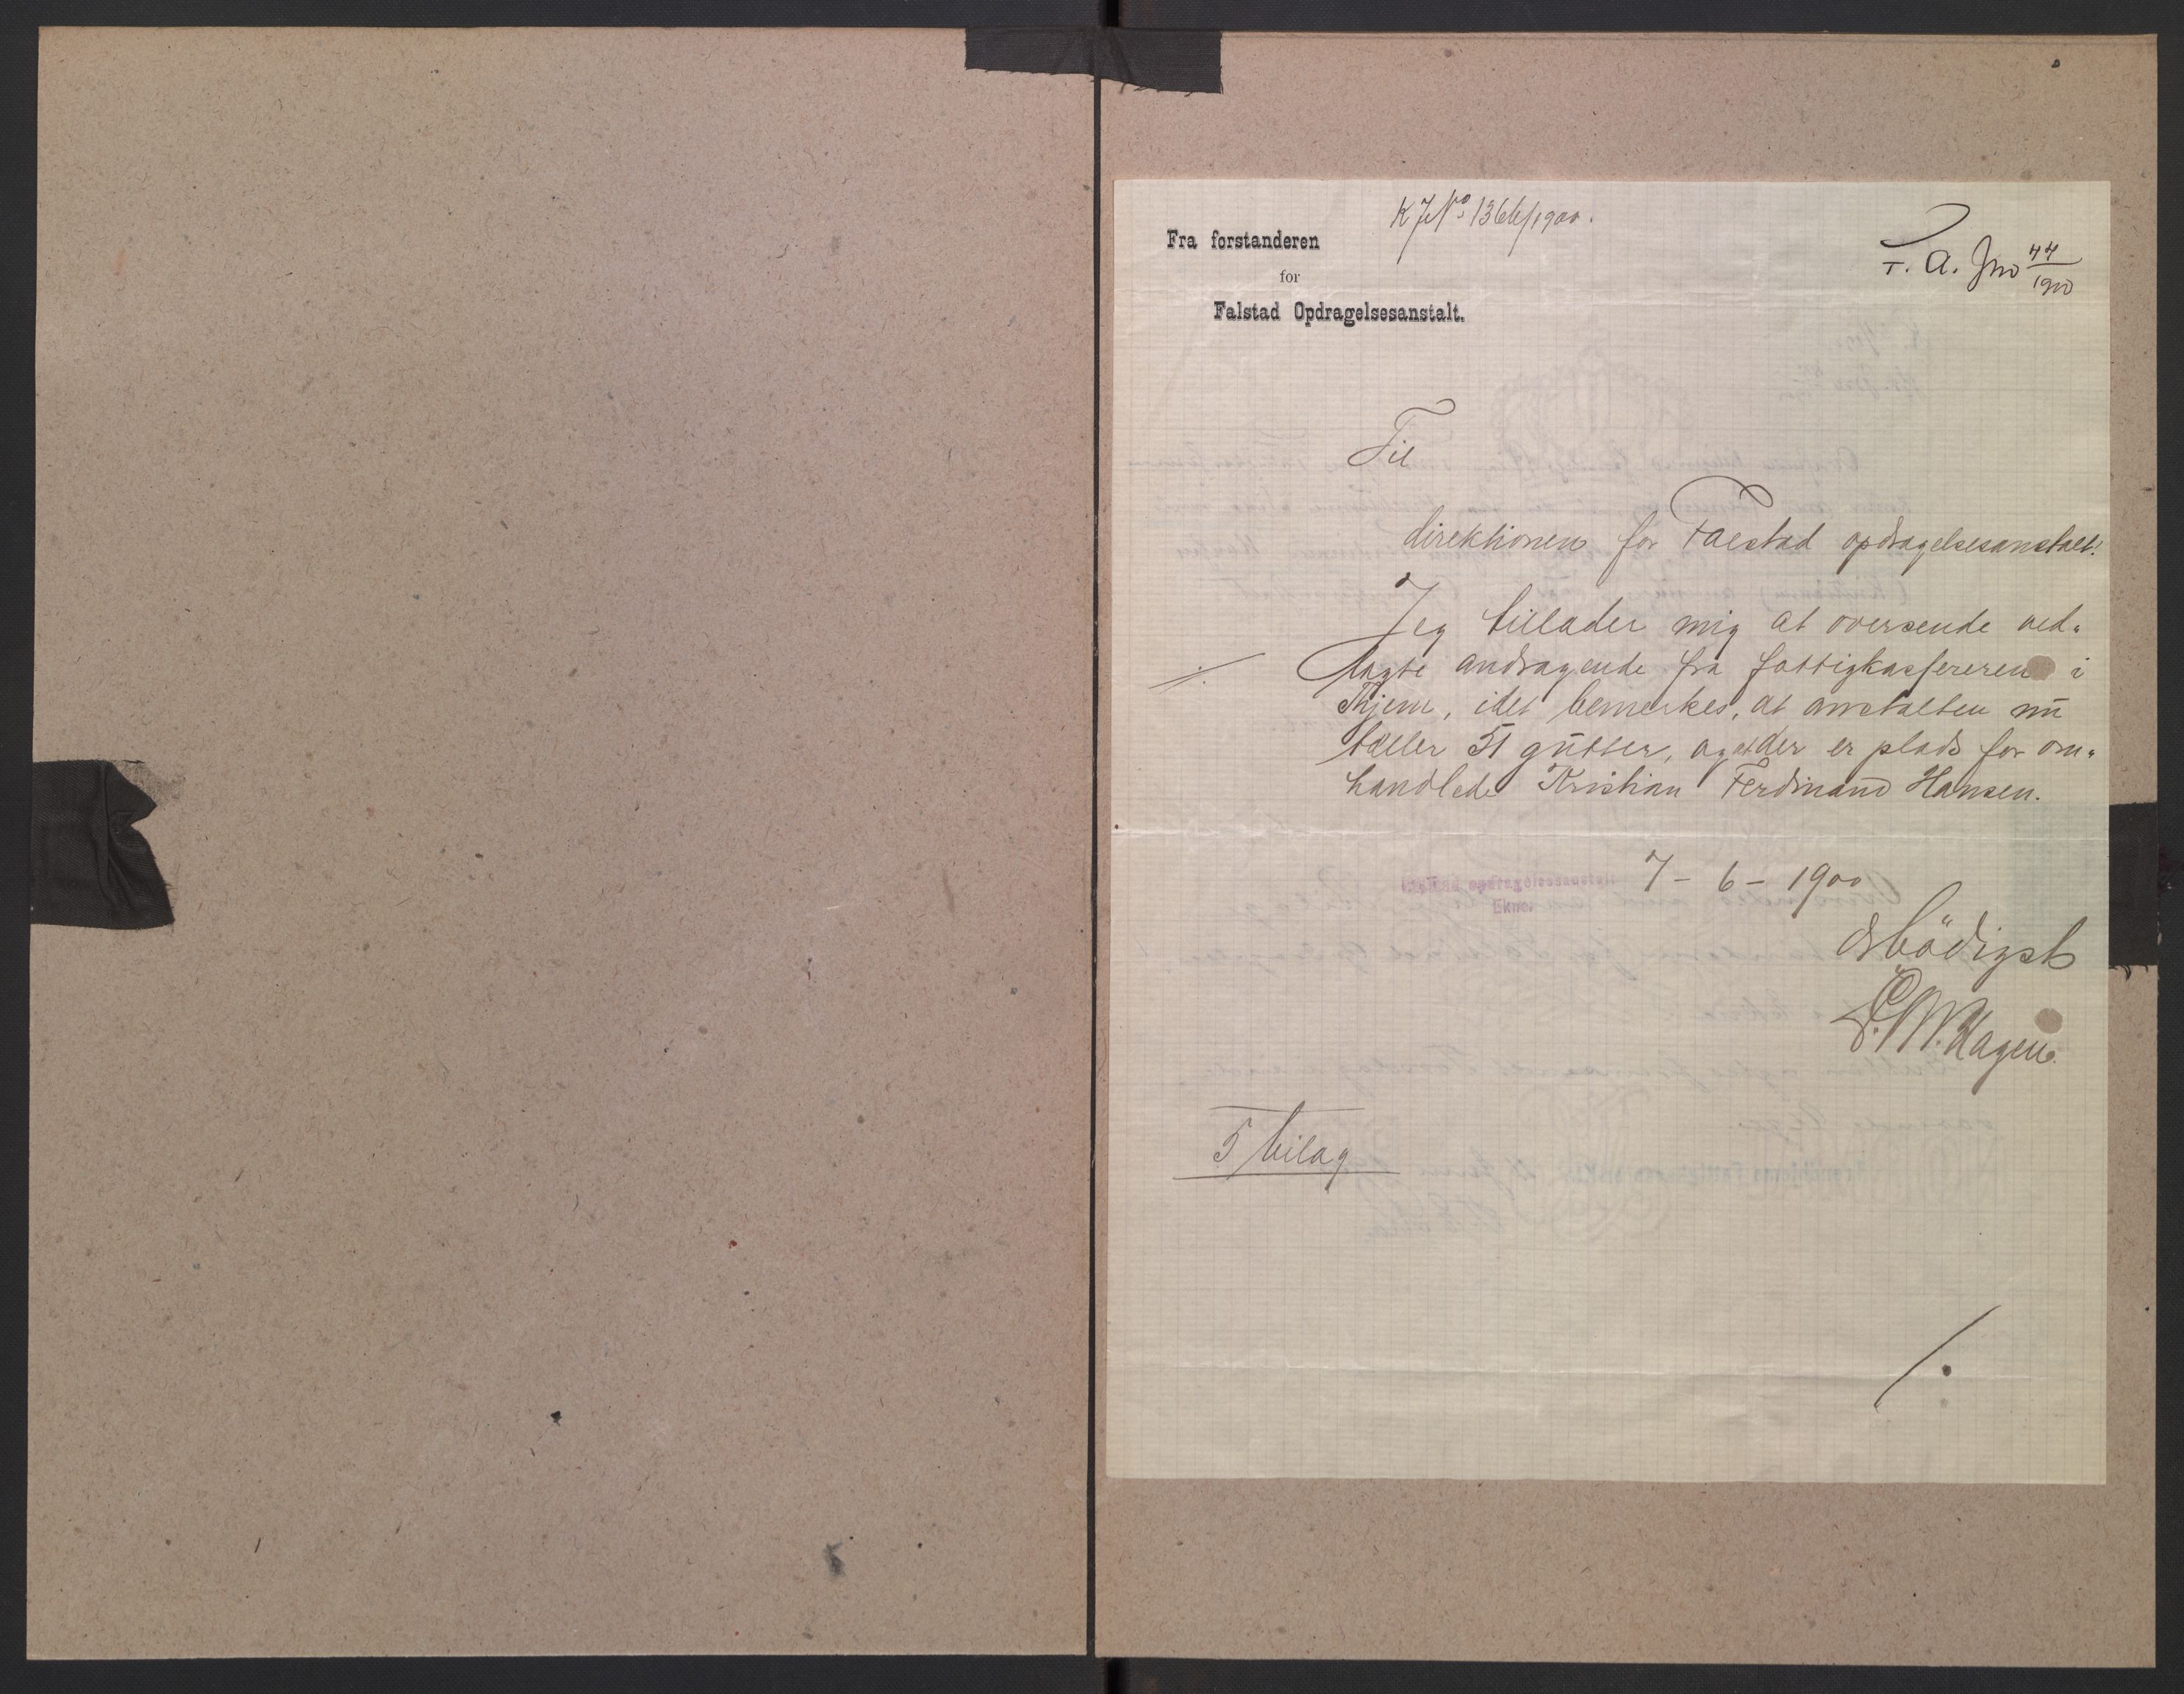 K J No 1366/1900.
F. A. Jno 44/1900
Fra forstanderen
for
Falstad Opdragelsesanstalt.
Til
direktionen for Falstad opdragelsesanstalt!
Jeg tillader mig at oversende ved-
./. lagte andragende fra fattigkassereren i
Thjem, idet bemerkes, at anstalten nu
tæller 51 gutter, og at der er plads for om-
handlede Kristian Ferdinand Hansen.
Falstad opdragelsesanstalt 7 - 6 - 1900
Ekne.
ærbödigst
Hagen.
5 bilag
/.